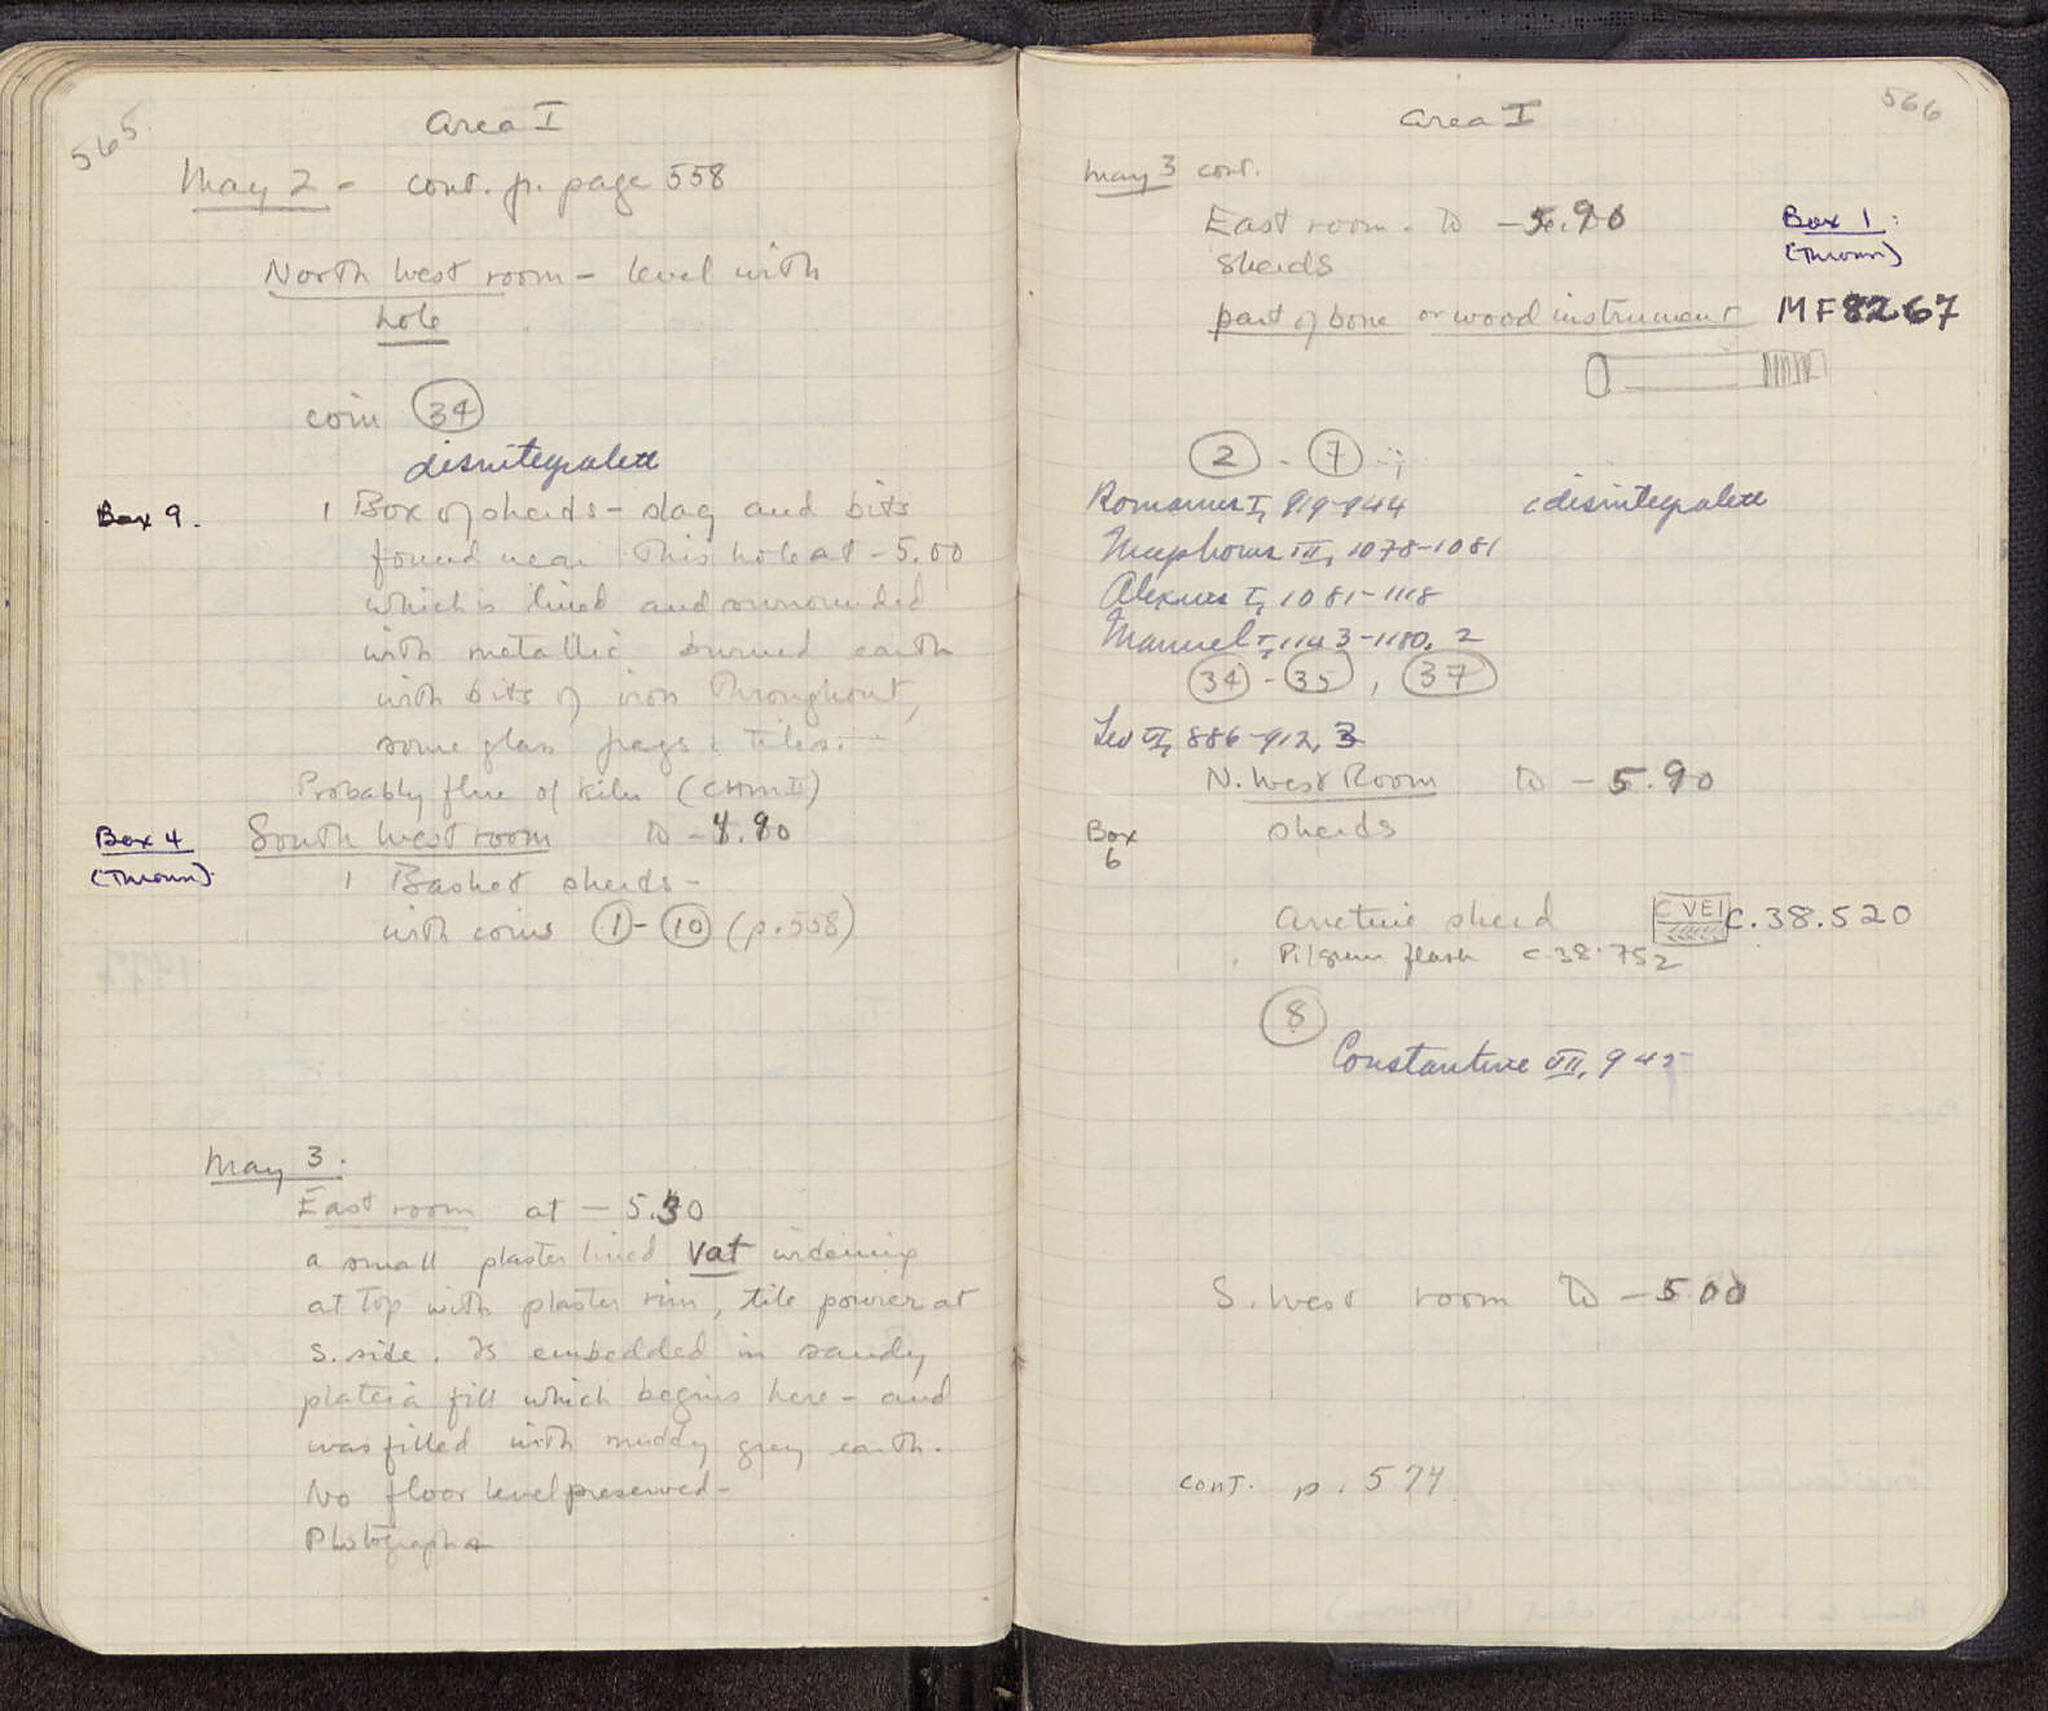 565
Area I
May 2 - cont. fr. page 558
North West room - level with
hole
coin 34
disintegrated
Box 9.
1 Box of sherds - slag and bits
found near this hole at -5.00
which is lined and surrounded
with metallic burned earth
with bits of iron throughout,
some glass frags & tiles.
Probably flue of kiln (CHM II)
Box 4
(Thrown)
South West room to -4.90
1 Basket sherds -
with coins 1 - 10 (p. 558)
May 3.
East room at - 5.30
a small plaster lined vat widening
at top with plaster rim, tile pourer at
S. side. Is embedded in sandy
plateia fill which begins here - and
was filled with muddy grey earth.
No floor level preserved -
Photographs
566
Area I
May 3 cont.
East room. to -5.90
Box 1:
(Thrown)
sherds
part of bone or wood instrument MF 8267
2 - 7
Romanus I, 919-944 disintegrated
Nicephorus III, 1078-1081
Alexius I, 1081-1118
Manuel I, 1143-1180, 2
34 - 35, 37
Leo VI, 886-912, 3
N. West Room to - 5.90
Box
6
sherds
Arretine sherd C VEI C.38.520
Pilgrim flask C.38.752
8
Constantine VII, 945
S. West room to - 5.00
cont. p. 574